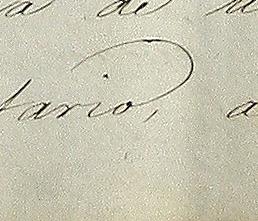 a de
tario, a